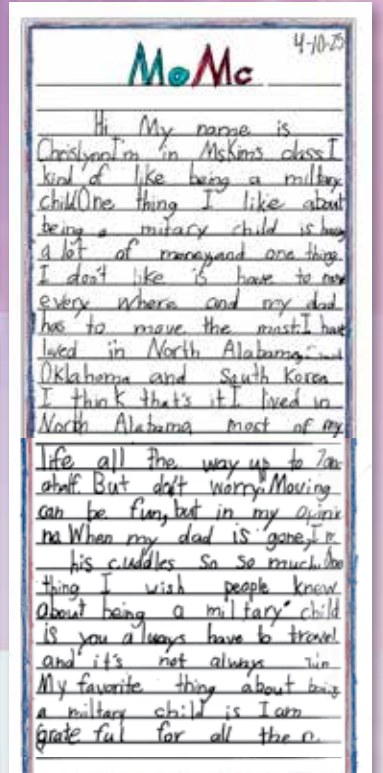 4-10-25
MoMc
Hi My name is
Chrislynn I'm in MsKim's class I
kind of like being a miltary
child One thing I like about
being a mitary child is having
a lot of money and one thing
I don't like is have to move
every where and my dad
has to move the most. I have
lived in North Alabama,
Oklahoma and South Korea
I think that's it I lived in
North Alabama most of my
life all the way up to 7 an
ahalf. But don't worry. Moving
can be fun, but in my
na When my dad is gone, I
his cuddles so so much. One
thing I wish people knew
about being a military child
is you always have to travel
and it's not always
My favorite thing about being
a miltary child is I am
grateful for all the